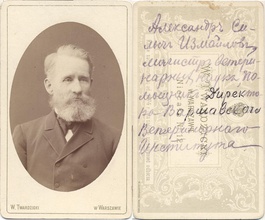 W. TWARDZICKI
W WARSZAWIE
Александръ Си-
лычъ Измайловъ,
магистръ ветери-
нарныхъ наукъ По-
мощникъ Директо-
ра Варшавскаго
Ветеринарнаго
Института